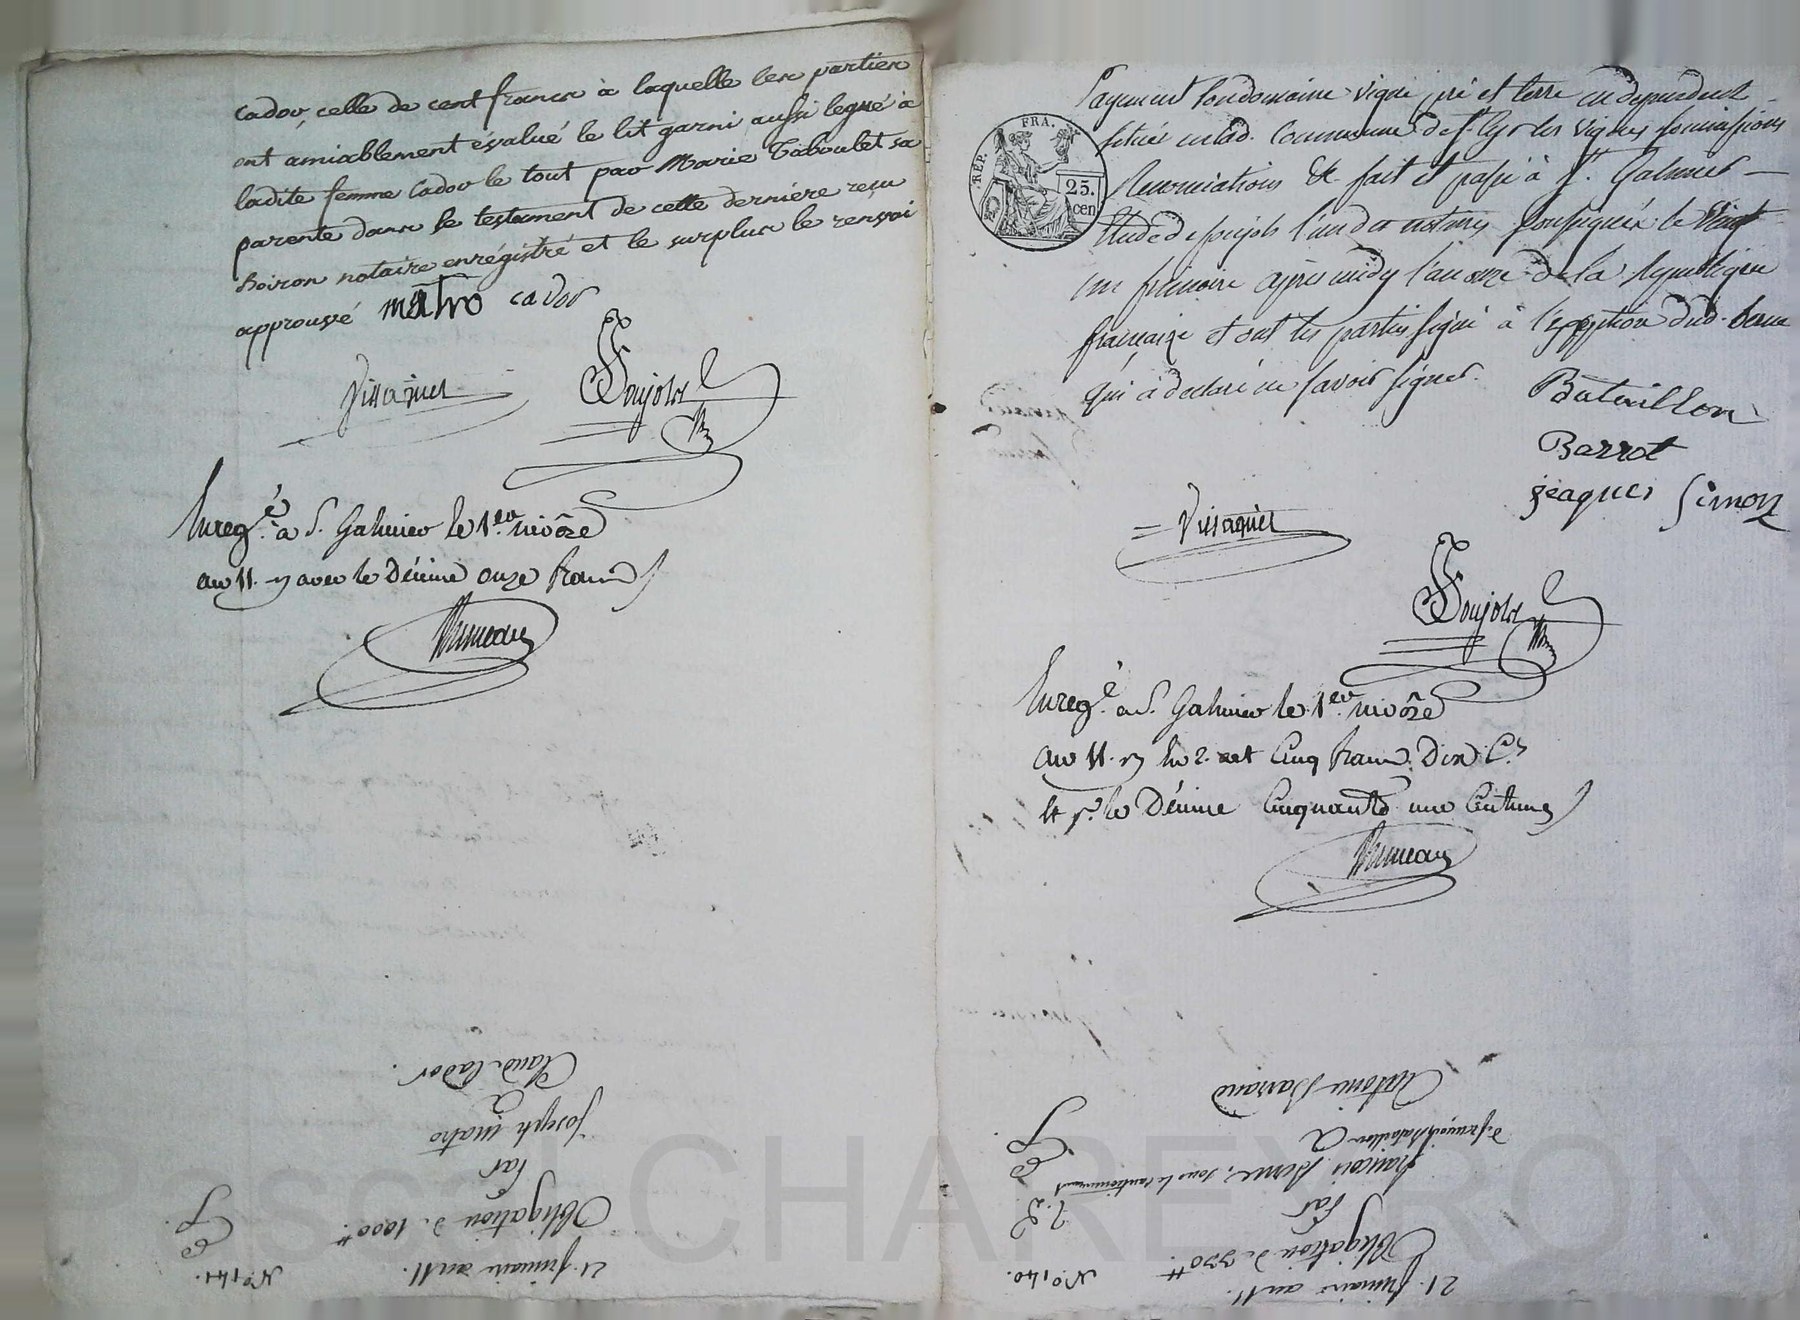 cador, celle de cent francs à laquelle les parties
ont amiablement évalué le lit garni aussi legué à
ladite femme Cador le tout par Marie Taboulet sa
parente dans le testament de cette derniere reçu
hoiron notaire enrégistré et le surplus le renvoi
approuvé matro cador
Vissaguet Poujols
Enreg.é à S. Galmier le 1.er nivôse
an 11. avec le Décime onze francs
Bruneau
Claude Cador.
à
Joseph matro
par
Obligation de 1000 tt
21. frimaire an 11.
N.º 141.
payement son domaine vigne pré et terre en dependant
situé en lad. Commune de St Cyr les vignes soumissions
Renonciations & fait et passé à St. Galmier
Etude de poujols l'un des notaires soussignés le vingt
un frimaire après midy l'an onze de la republique
française et ont les parties signé à l'exception dud. Berne
qui a declaré ne savoir signer.
RÉP. FRA.
25.
cen
Bataillon
Barrot
jeaques Simon
Vissaguet
Poujols
Enreg.é à S. Galmier le 1.er nivôse
an 11. Cinq francs Dix C.s
et p.r le Décime Cinquante une Centimes
Bruneau
Antoine Barraud
à
de françois Bataillon
françois Berne, sous le cautionnement
par
Obligation de 330 tt
21. frimaire an 11.
N.º 140.
Pascal CHAREYRON